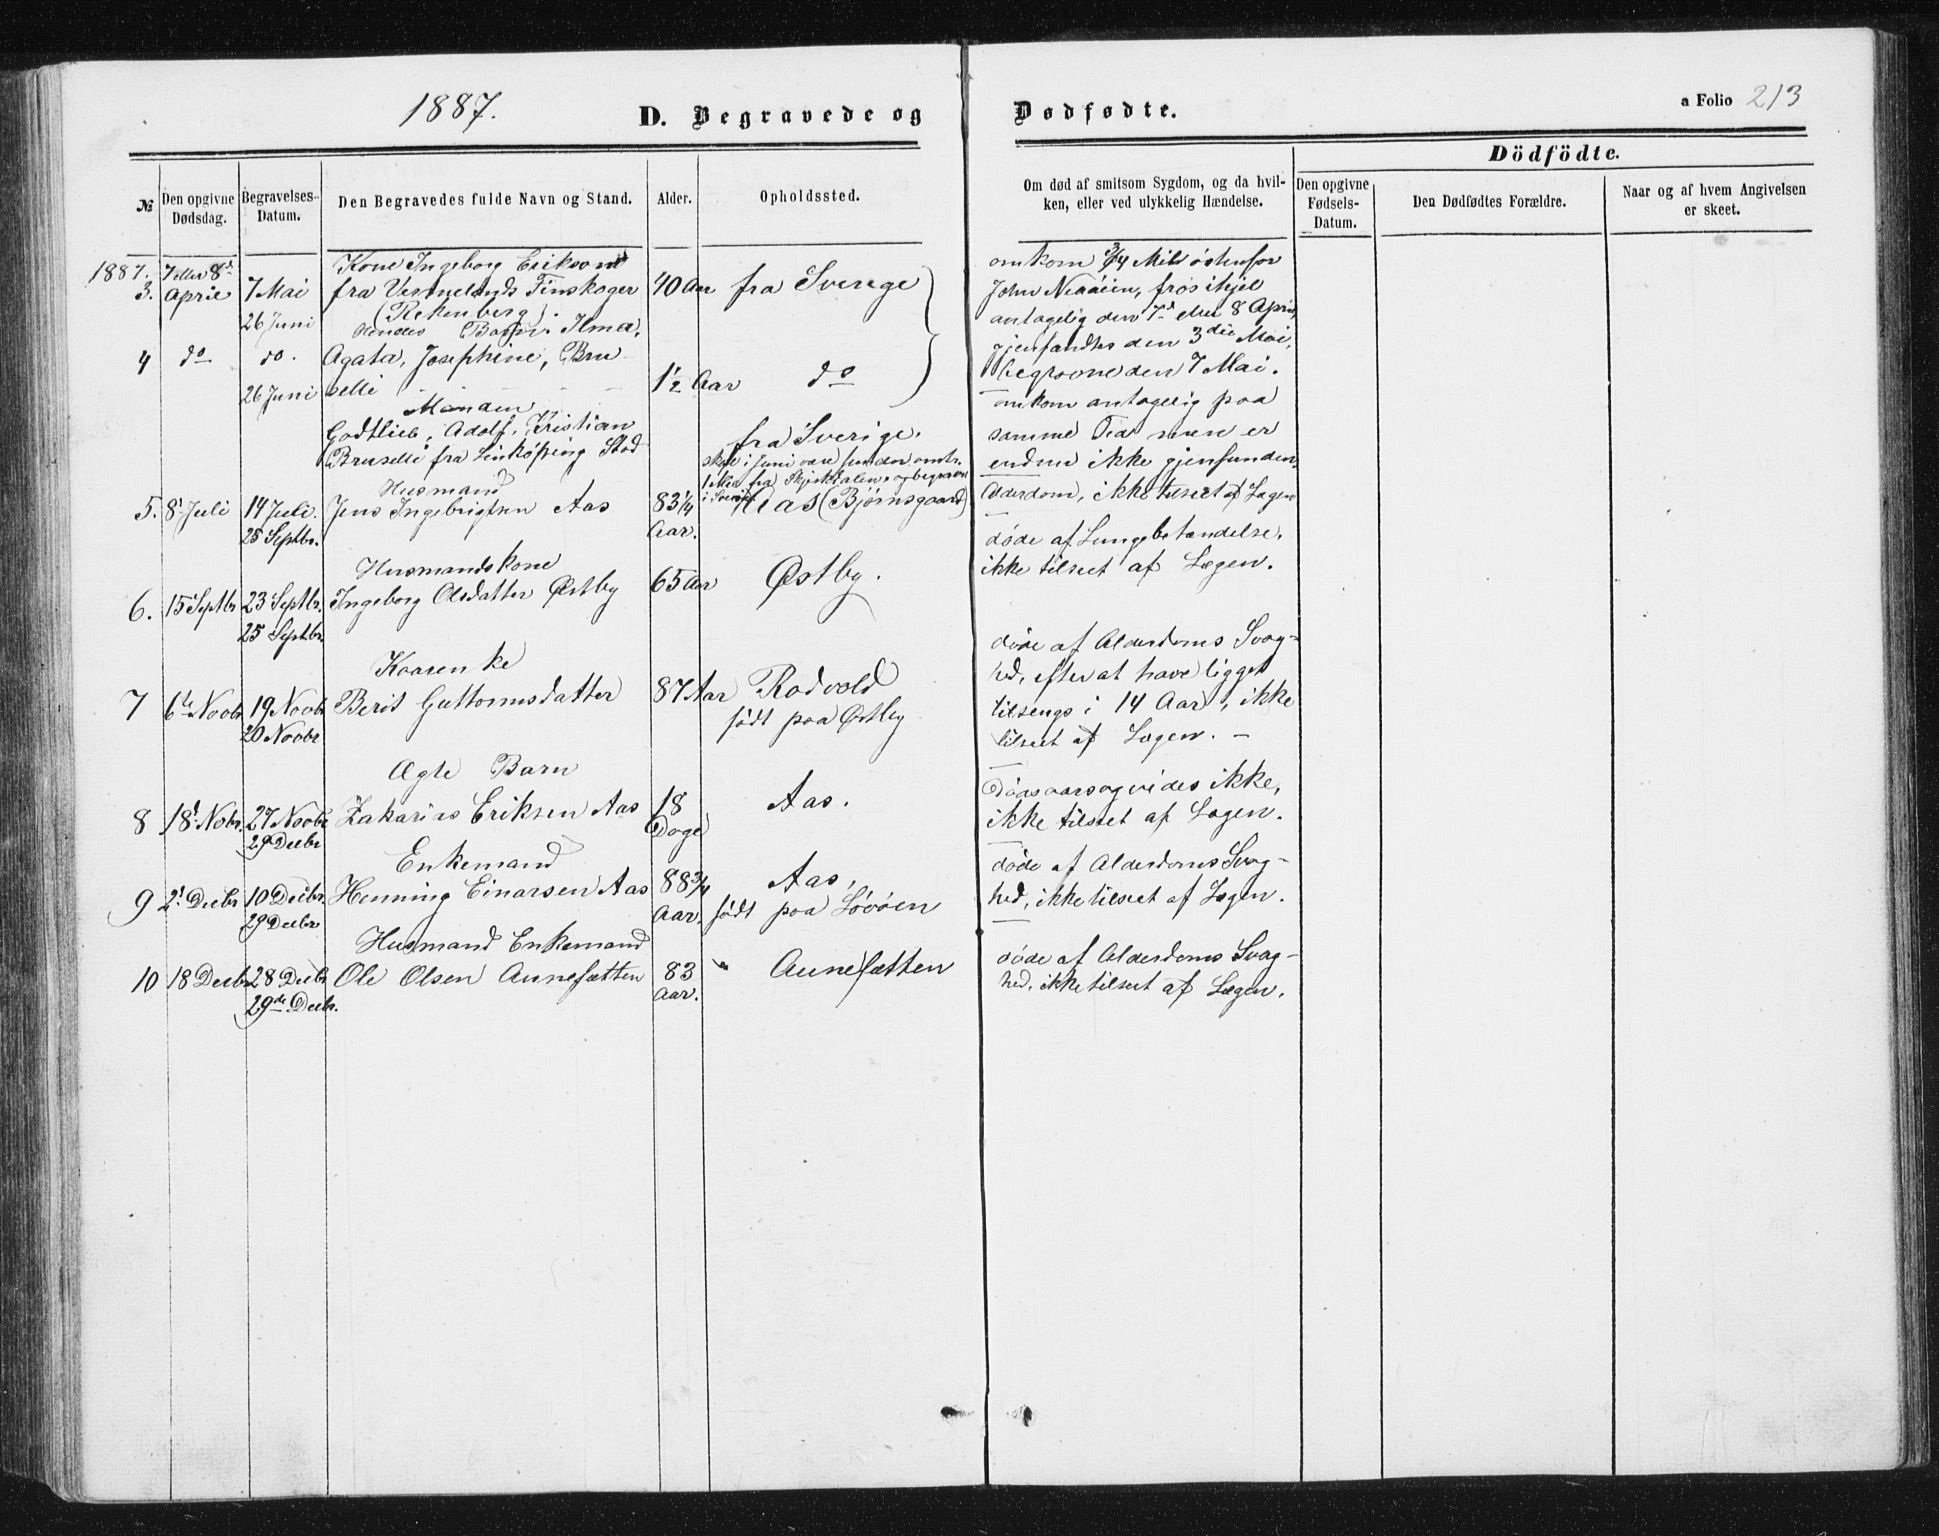 1887.
D. Begravede og Dødfødte.
a Folio 213
Dödfödte.
№
Den opgivne Dødsdag.
Begravelses-Datum.
Den Begravedes fulde Navn og Stand.
Alder.
Opholdssted.
Om død af smitsom Sygdom, og da hvil-
ken, eller ved ulykkelig Hændelse.
Den opgivne Fødsels-Datum.
Den Dødfødtes Forældre.
Naar og af hvem Angivelsen er skeet.
1887.
3.
7 eller 8d
April
7 Mai
26 Juni
Kone Ingeborg Erikson
fra Vermelands Finskoger
(Rekenberg)
40 Aar
fra Sverige
omkom 3/4 Mil østenfor
John Neaøien, frøs ihjel
antagelig den 7d eller 8 April,
gjenfandtes den 3die Mai,
begravne den 7 Mai.
4
do
do.
26 Juni
Hendes Barn: Ilma,
Agata, Josephine, Bru
selli
1 1/2 Aar
do
Manden
Godtlieb, Adolf, Kristian
Bruselli fra Linköping Stad
fra Sverige.
skal i Juni være funden omtr.
1 Mil fra Skjækdalen og begraven
i Sverige
omkom antagelig paa
samme Tid men er
endnu ikke gjenfunden.
5.
8d Juli
14 Juli.
25 Septbr.
Husmand
Jens Ingebrigtsen Aas
83 1/4
Aar.
Aas (Bjørnsgaard)
Alderdom, ikke tilseet af Lægen
6.
15 Septbr
23 Septbr.
25 Septbr.
Husmandskone
Ingeborg Olsdatter Østby
65 Aar
Østby.
døde af Lungebetændelse,
ikke tilseet af Lægen.
7
6te Novbr
19 Novbr
20 Novbr
Kaarenke
Berit Guttormsdatter
87 Aar
Rodvold
født paa Østby
døde af Alderdoms Svag-
hed, efter at have ligget
tilsengs i 14 Aar, ikke
tilseet af Lægen. -
8
18d Nobr.
27 Novbr
29 Decbr
Ægte Barn
Zakarias Eriksen Aas
18
Dage
Aas.
Dødsaarsag vides ikke,
ikke tilseet af Lægen.
9
2d Decbr
10 Decbr.
29 Decbr
Enkemand
Henning Einarsen Aas
88 3/4
Aar.
Aas,
født paa Løvøen
døde af Alderdoms Svag-
hed, ikke tilseet af Lægen.
10
18 Decbr
28 Decbr
29de Decbr.
Husmand Enkemand
Ole Olsen Aunefætten
83
Aar.
Aunefætten
døde af Alderdoms Svag-
hed, ikke tilseet af Lægen.